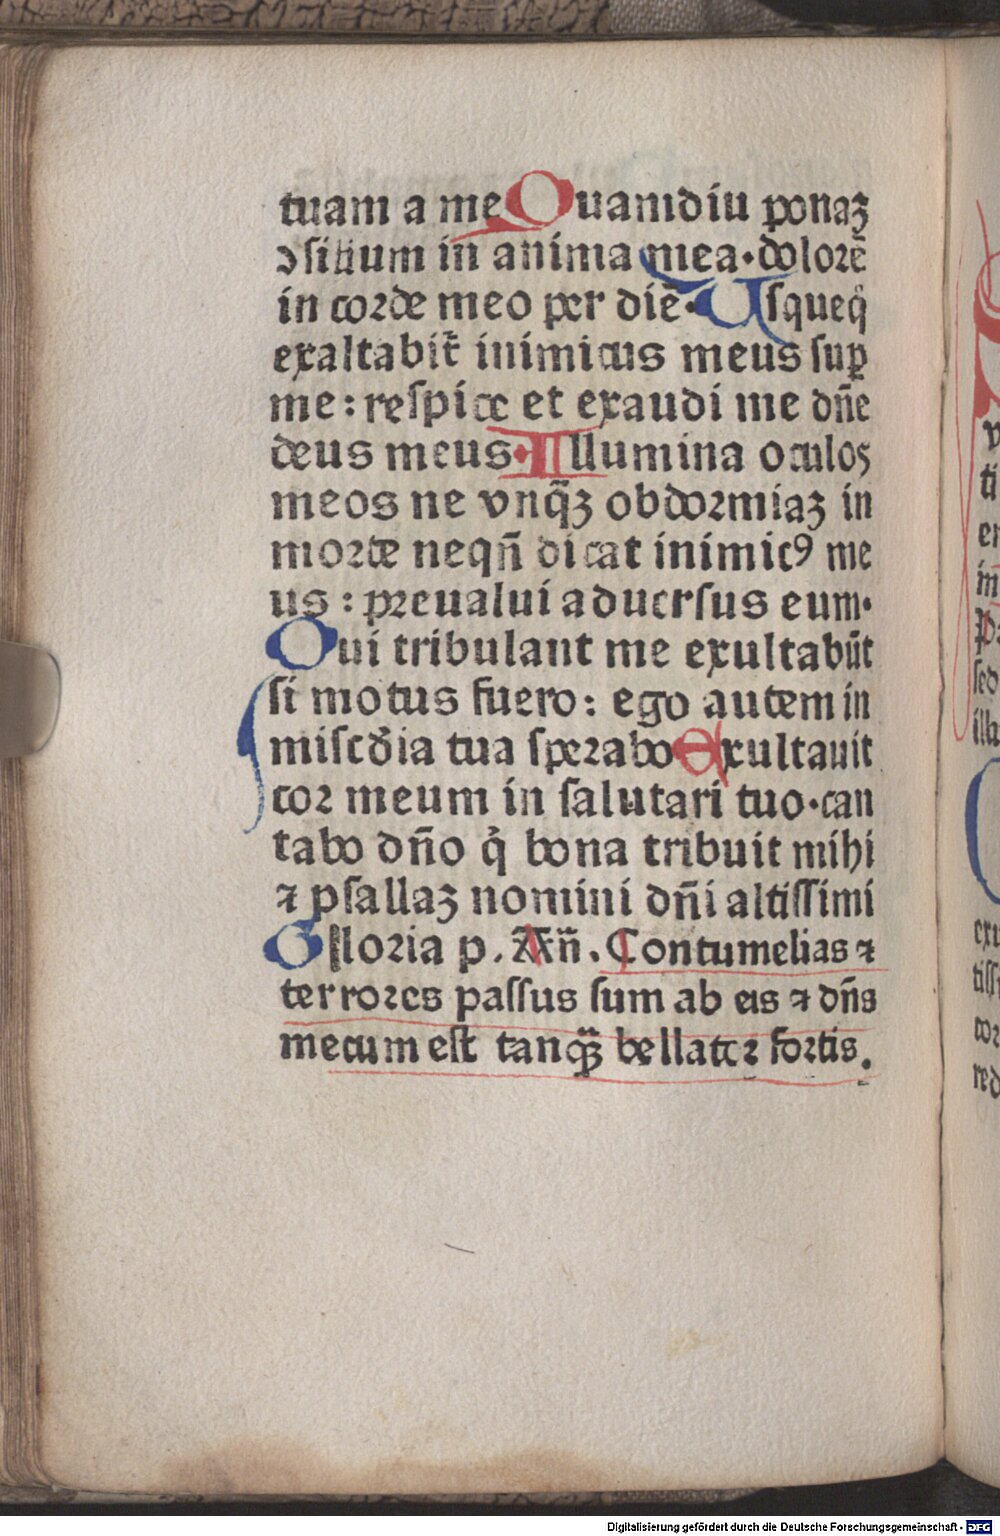 tuam a me Quamdiu ponaꝫ
ↄsilium in anima mea·dolorē
in corde meo per diē·Usqueq̊
exaltabit᷑ inimicus meus suꝑ
me : respice et exaudi me dn̄e
deus meus·Illumina oculos
meos ne vnqᷓꝫ obdormiaꝫ in
morte neqn̄ dicat inimicꝰ me
us : preualui aduersus eum·
Qui tribulant me exultabūt
si motus fuero : ego autem in
misc̄dia tua sperabo Exultauit
cor meum in salutari tuo·can
tabo dn̄o q̇ bona tribuit mihi
⁊ psallaꝫ nomini dn̄i altissimi
Gloria p. An̄. Contumelias ⁊
terrores passus sum ab eis ⁊ dn̄s
mecum est tanqᷓꝫ bellator fortis.
Digitalisierung gefördert durch die Deutsche Forschungsgemeinschaft - DFG